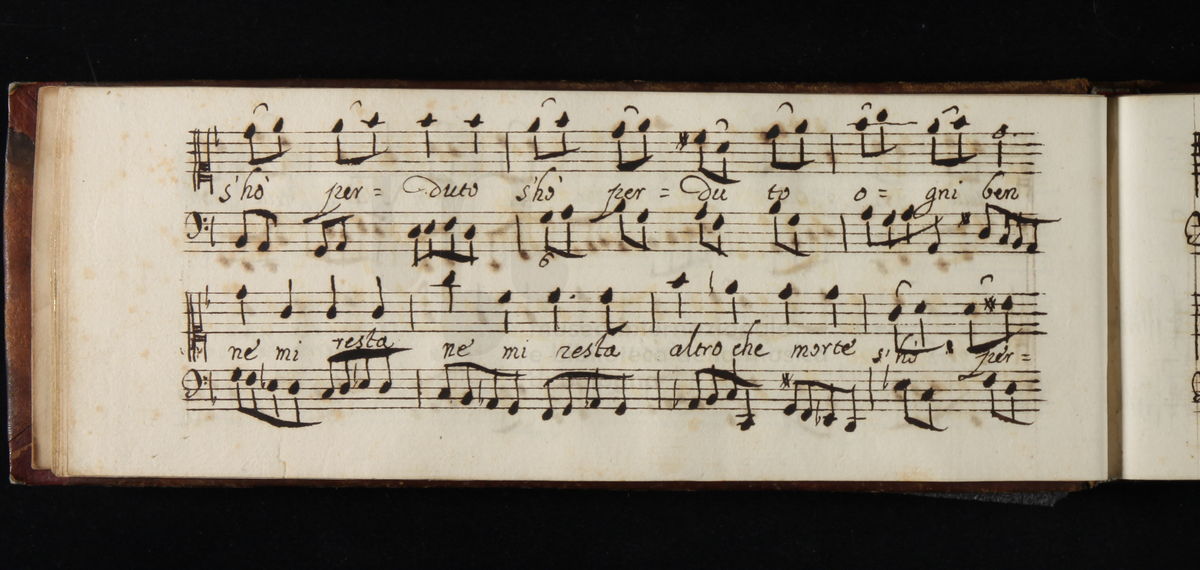 s'hò per= duto s'hò per= du to o= gni ben
6
ne mi resta ne mi resta altro che morte s'hò per=